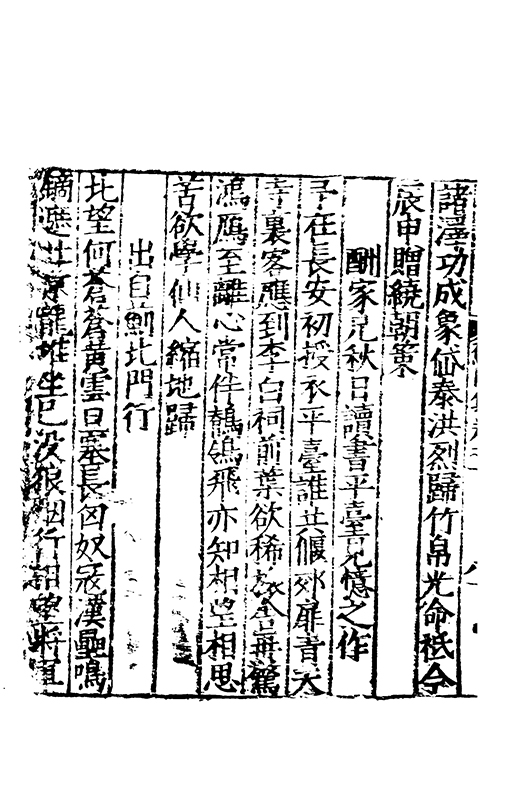 諸瀛功成象岱泰洪烈歸竹帛光命祗今
辰申贈繞朝策
酬家兄秋日讀書平臺見憶之作
予在長安初授衣平臺誰共偃郊扉青天
寺裏客應到李白祠前葉欲稀驚
鴻鴈至離心常伴鶺鴒飛亦知相望相思
苦欲學仙人縮地歸
出自薊北門行
北望何蒼蒼黃雲日塞長匈奴寇漢壘鳴
鏑遮坐已没狼烟行望將軍